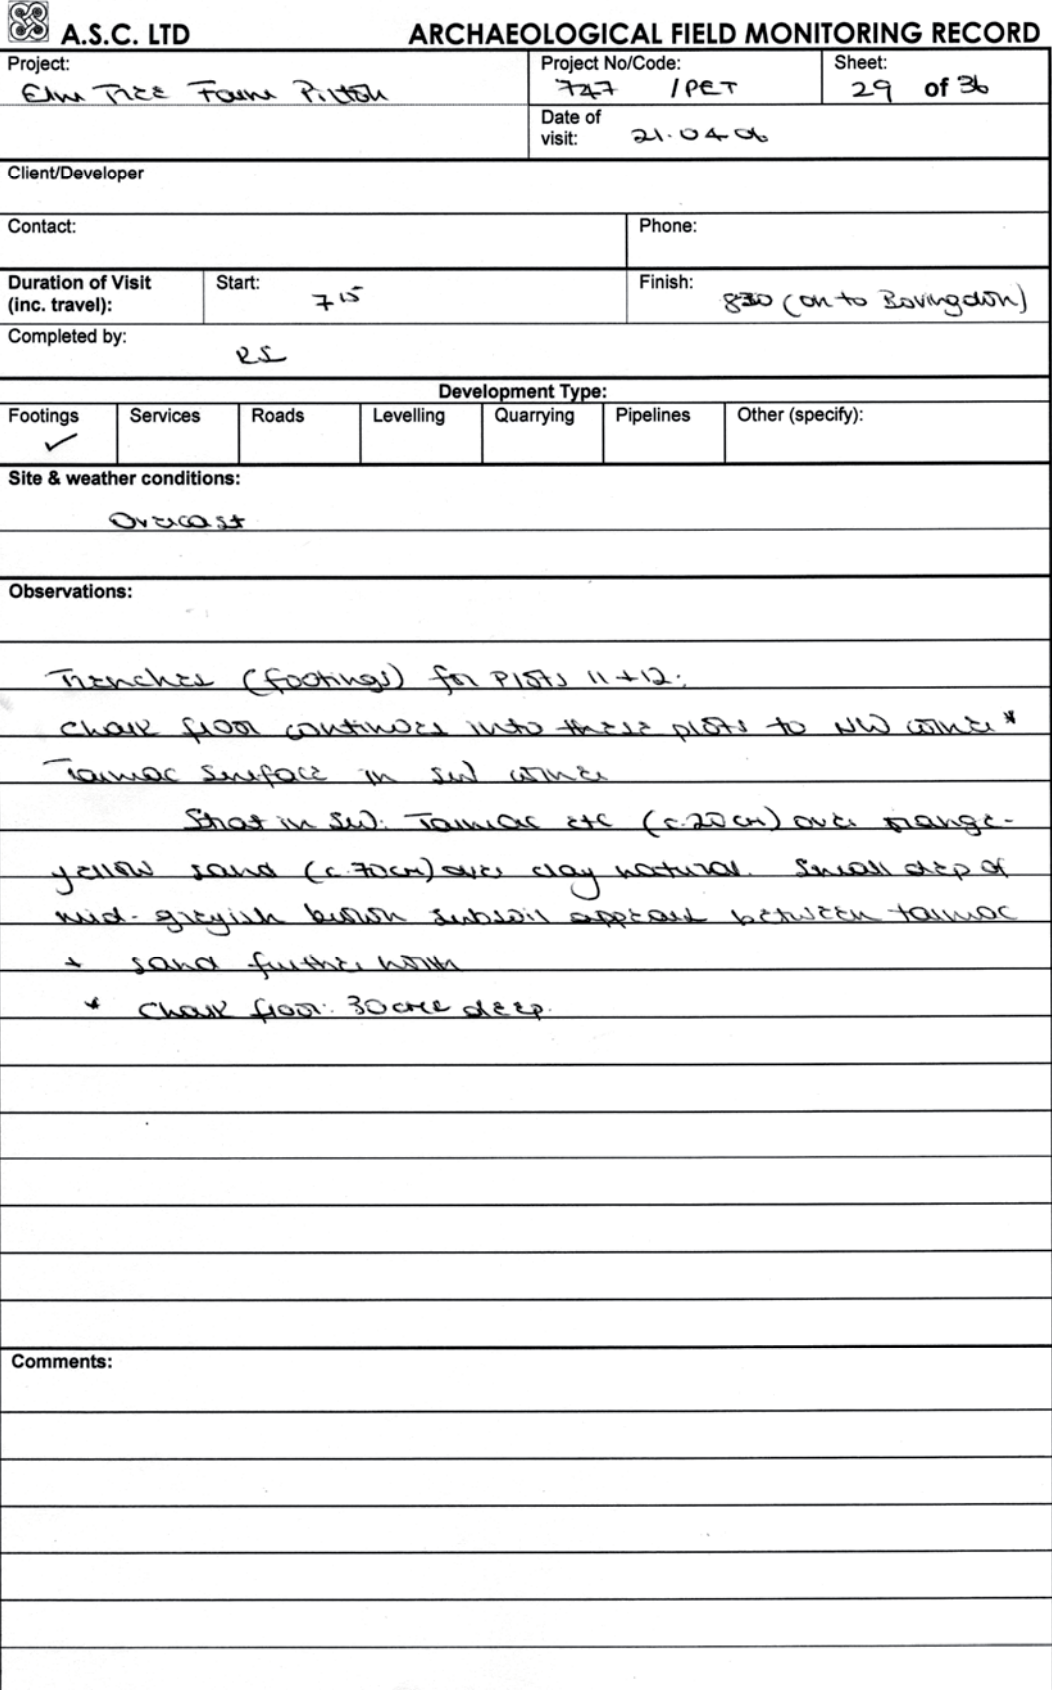 A.S.C. LTD ARCHAEOLOGICAL FIELD MONITORING RECORD
Project: Project No/Code: Sheet:
Elm Tree Farm Pitston 747 /PET 29 of 36
Date of visit: 21.04.06
Client/Developer
Contact: Phone:
Duration of Visit (inc. travel): Start: 7 15 Finish: 830 (on to Bovingdon)
Completed by: RS
Development Type:
Footings Services Roads Levelling Quarrying Pipelines Other (specify):
✓
Site & weather conditions:
Overcast
Observations:
Trenches (footings) for Plots 11 + 12:
Chalk floor continues into these plots to NW corner *
Tarmac surface in SW corner
Strat in SW: Tarmac etc (c.20cm) over orange-
yellow sand (c.70cm) over clay natural. Small dep of
mid-greyish brown subsoil appears between tarmac
+ sand further north
* Chalk floor: 30cms deep.
Comments: